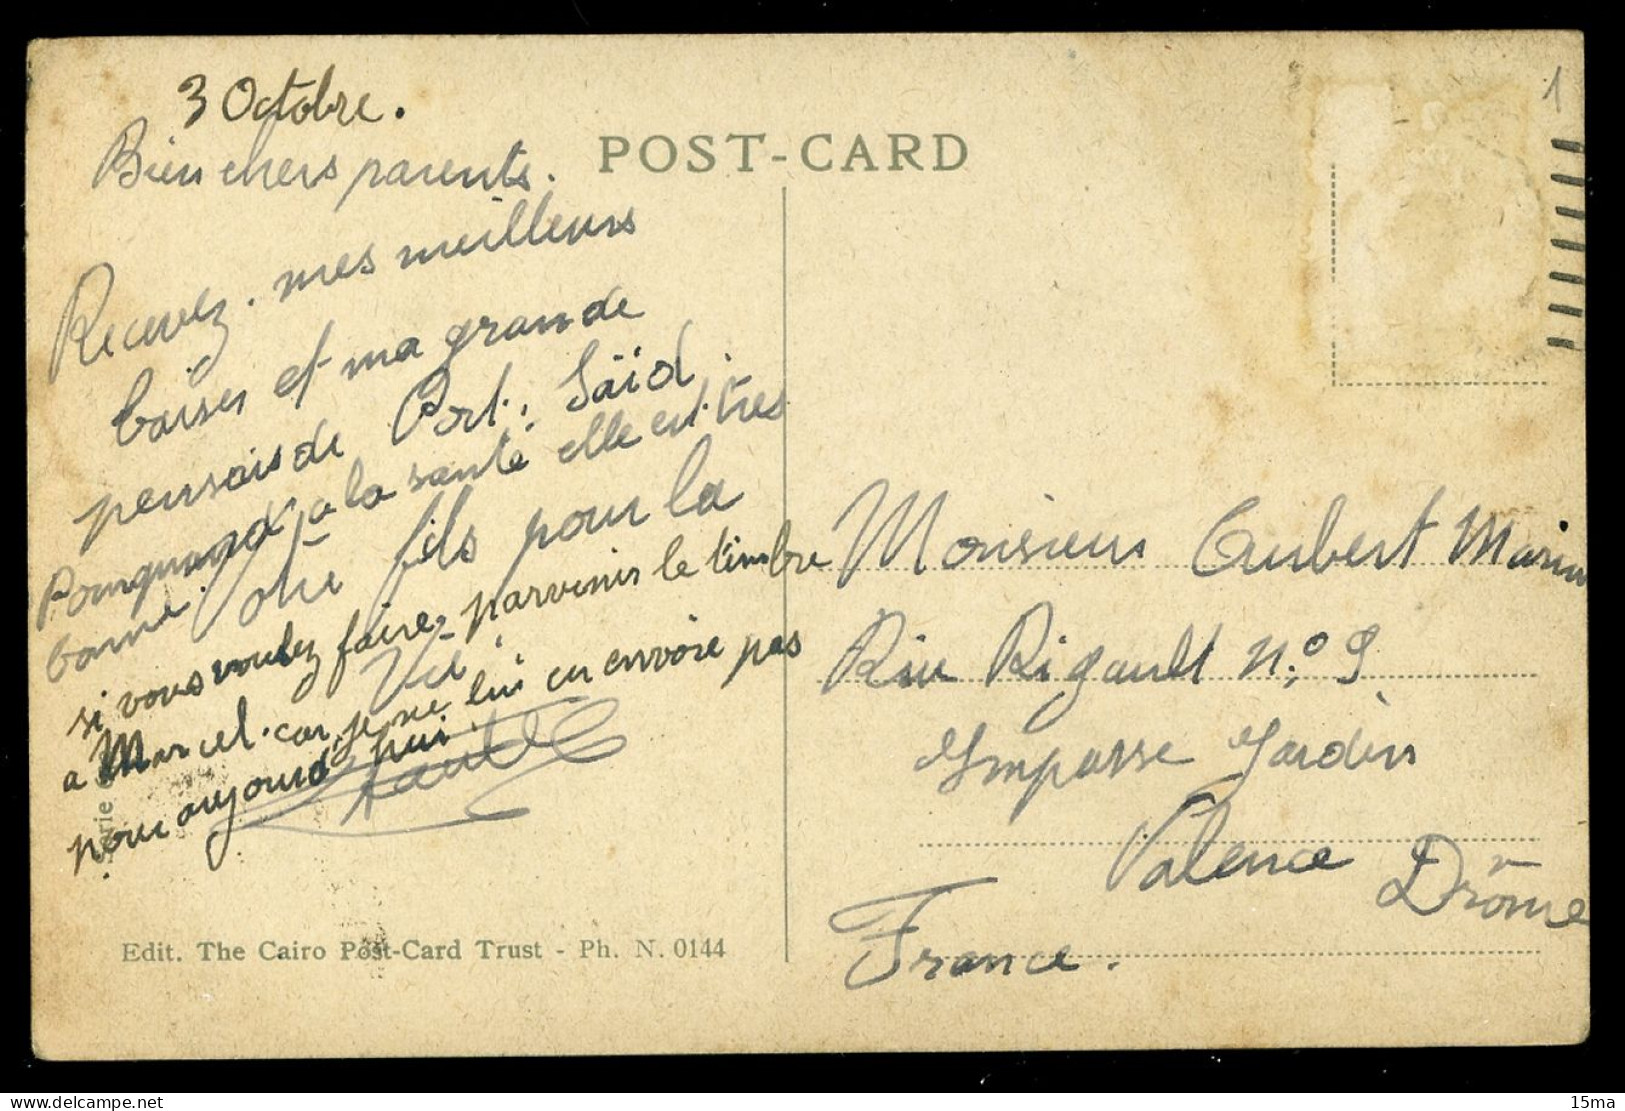 3 Octobre.
Bien chers parents.
POST-CARD
Recevez. mes meilleurs
baiser et ma grande
pensais de Port. Saïd.
Pourquand a la santé elle est très
bonne. fils pour la
Vie.
si vous voulez faire parvenir le timbre
a Marcel. car je ne lui en envoie pas
pour aujourd'hui.
Edit. The Cairo Post-Card Trust - Ph. N. 0144
Monsieur Aubert Marin
Rue Rigault n.° 9
Impasse Jardin
Valence Drôme
France.
1
15ma